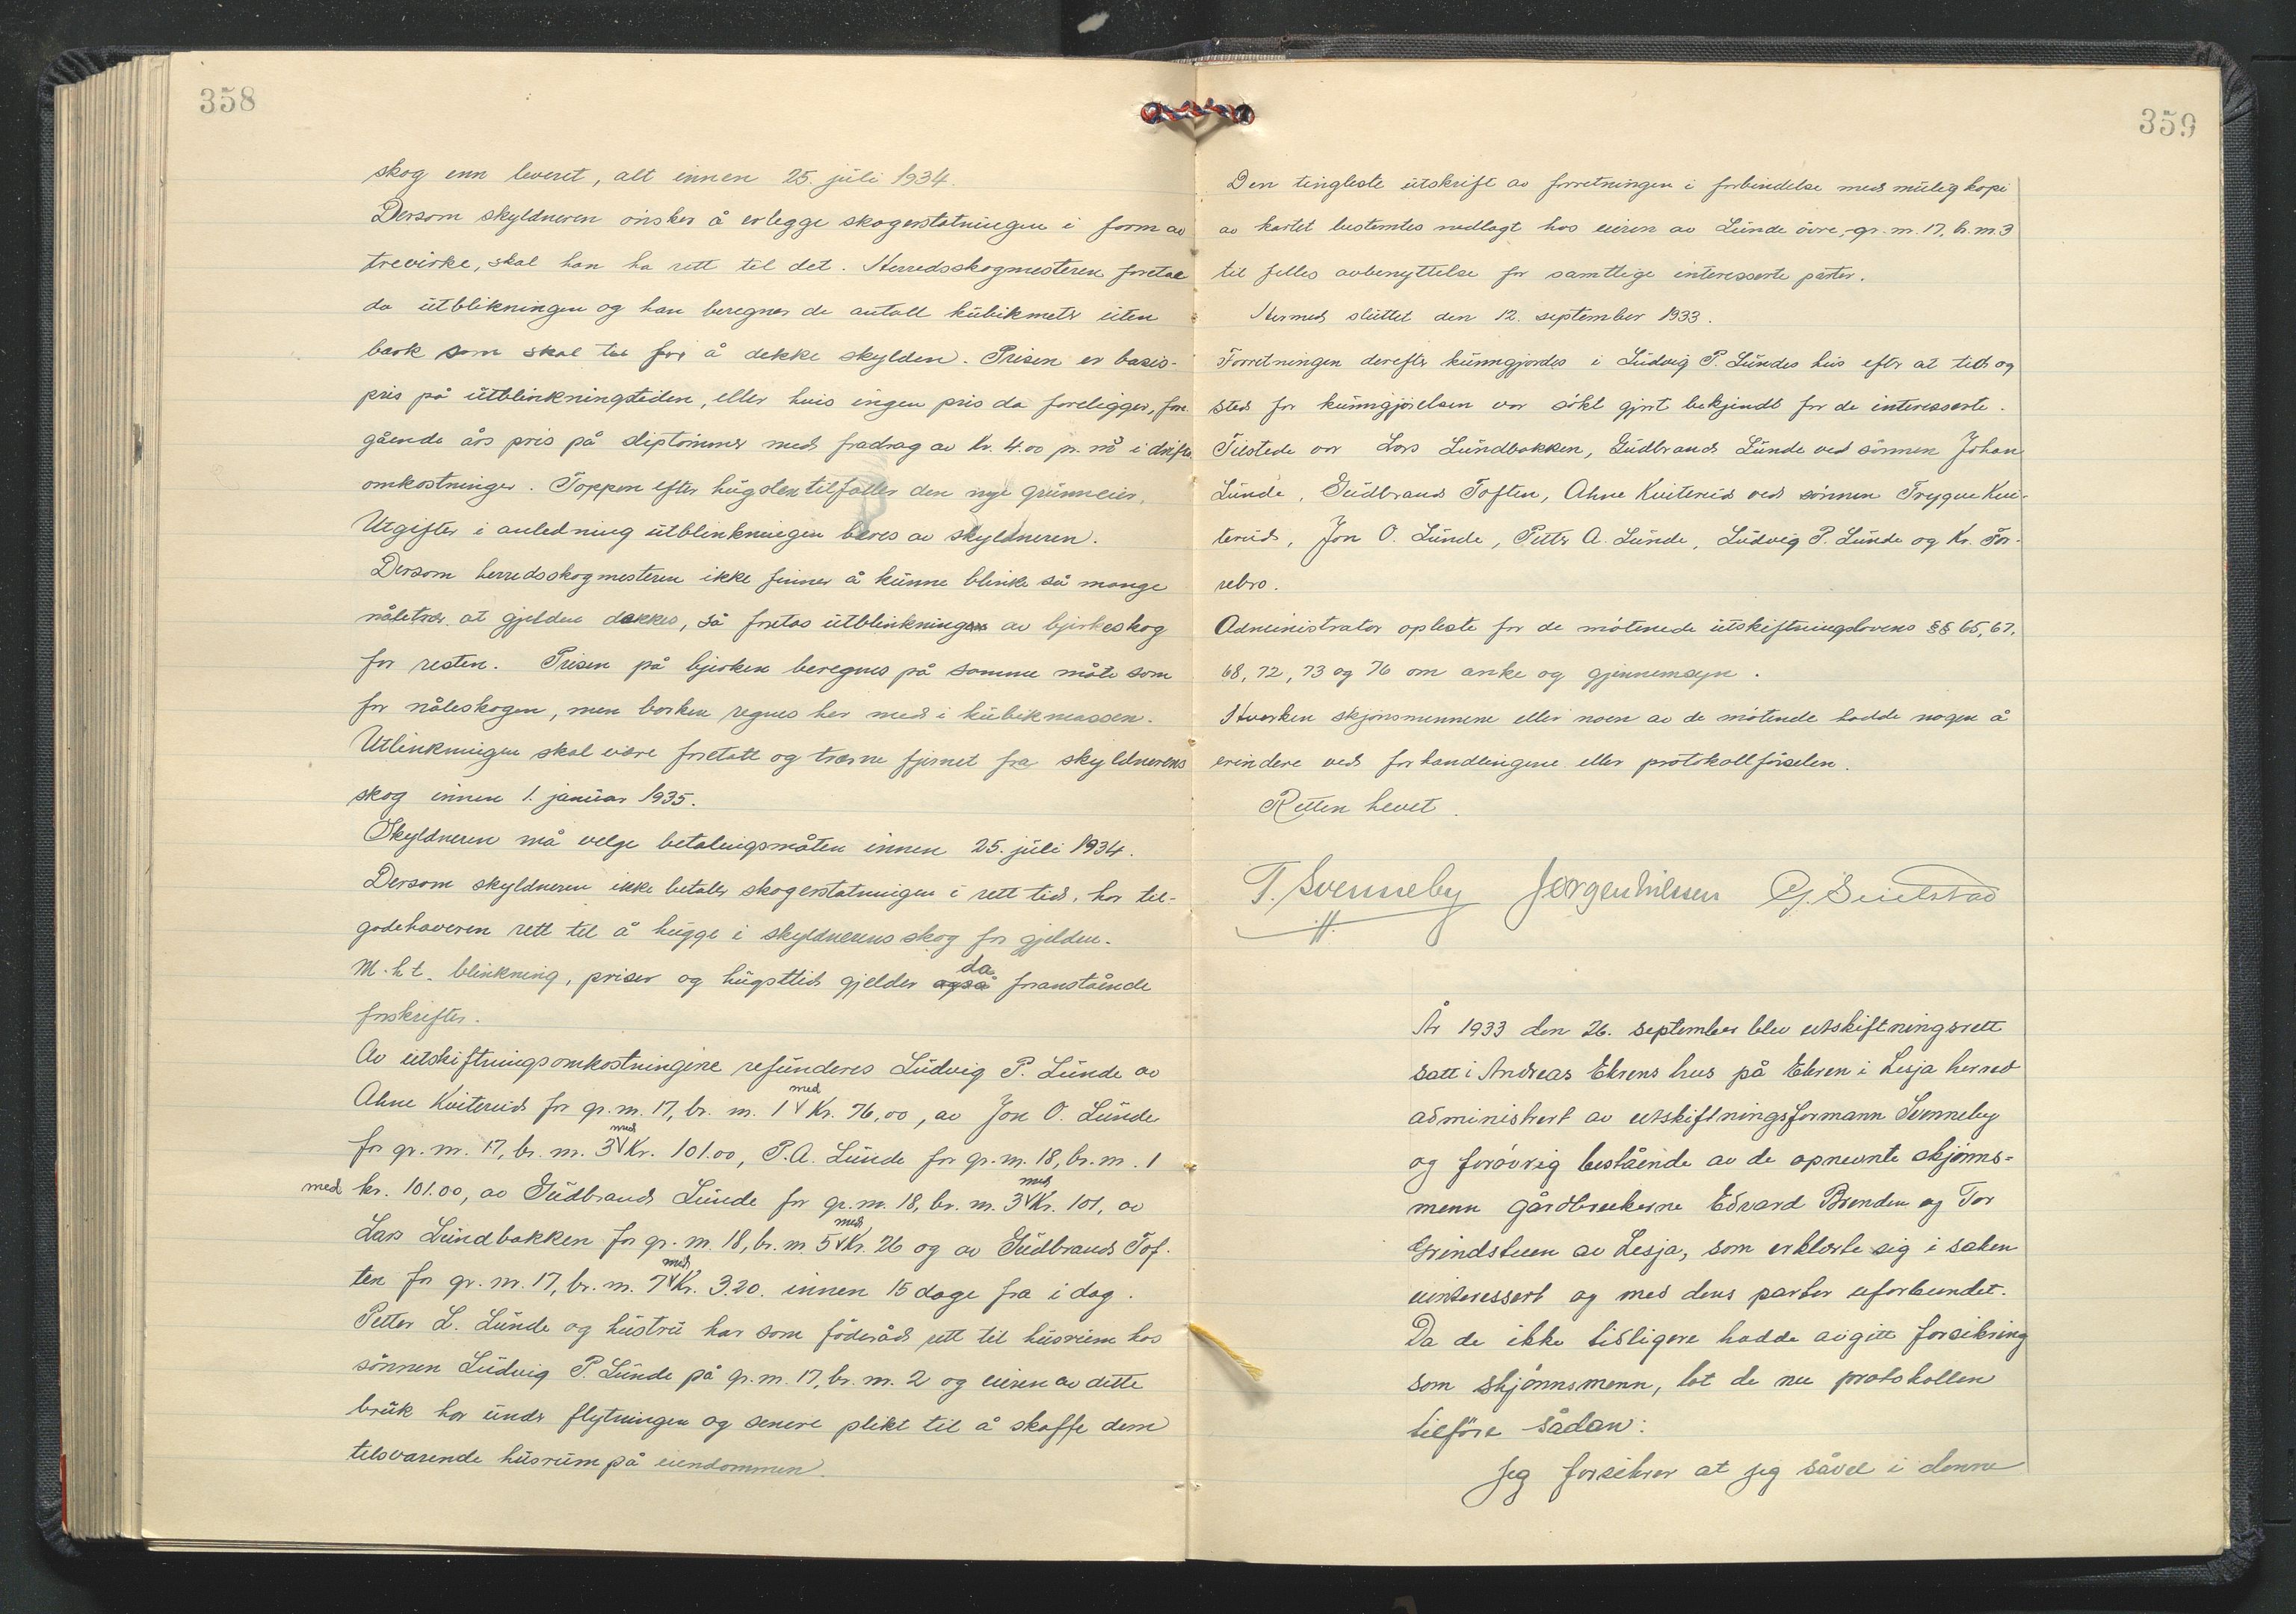 358
skog enn levert, alt innen 25. juli 1934.
Dersom skyldneren ønsker å erlegge skogerstatningen i form av
trevirke, skal han ha rett til det. Herredsskogmesteren foretar
da utblikningen og han beregner de antall kubikmetr uten
bark som skal til for å dekke skylden. Prisen er basis-
pris på utblinkningstiden, eller hvis ingen pris da foreligger, fore
gående års pris på sliptømmer med fradrag av kr. 4.00 pr. m³ i drifts
omkostninger. Toppen efter hugsten tilfaller den nye grunneier.
Utgifter i anledning utblinkningen bæres av skyldneren.
Dersom herredsskogmesteren ikke finner å kunne blinke så mange
nåletrær at gjelden dækkes, så foretas utblinkningen av bjerkeskog
for resten. Prisen på bjerken beregnes på samme måte som
for nåleskogen, men barken regnes her med i kubikmassen.
Utlinkningen skal være foretatt og trærne fjernet fra skyldnerens
skog innen 1. januar 1935.
Skyldneren må velge betalingsmåten innen 25. juli 1934.
Dersom skyldneren ikke betaler skogerstatningen i rett tid, har til-
godehaveren rett til å hugge i skyldnerens skog for gjelden.
M.h.t. blinkning, priser og hugsttid gjelder også da foranstående
forskrifter.
Av utskiftningsomkostningene refunderes Ludvig P. Lunde av
Ahne Kviterud for gr. nr. 17, br. nr. 1 med Kr. 76,00, av Jon O. Lunde
for gr. nr. 17, br. nr. 3 med Kr. 101.00, P.A. Lunde for gr. nr. 18, br. nr. 1
med kr. 101.00, av Gudbrand Lunde for gr. nr. 18, br. nr. 3 med Kr. 101, av
Lars Lundbakken for gr. nr. 18, br. nr. 5 med Kr. 26 og av Gudbrand Tof-
ten for gr. nr. 17, br. nr. 7 med Kr. 3.20. innen 15 dage fra i dag.
Petter L. Lunde og hustru har som føderåd rett til husrum hos
sønnen Ludvig P. Lunde på gr. nr. 17, br. nr. 2 og eieren av dette
bruk har undr flytningen og senere plikt til å skaffe dem
tilsvarende husrum på eiendommen.
359
Den tingleste utskrift av forretningen i forbindelse med mulig kopi
av kartet bestemtes nedlagt hos eieren av Lunde øvre, gr. nr. 17, br. nr. 3
til felles avbenyttelse for samtlige interesserte parter.
Hermed sluttet den 12. september 1933.
Forretningen derefter kunngjordes i Ludvig P. Lundes hus efter at tid og
sted for kunngjørelsen var søkt gjort bekjendt for de interesserte.
Tilstede var Lars Lundbakken, Gudbrand Lunde ved sønnen Johan
Lunde, Gudbrand Toften, Ahne Kviterud ved sønnen Trygve Kvi-
terud, Jon O. Lunde, Petter A. Lunde, Ludvig P. Lunde og Kr. Tor-
rebro.
Administrator opleste for de møtende utskiftningslovens §§ 65, 67,
68, 72, 73 og 76 om anke og gjennemsyn.
Hverken skjønsmennene eller noen av de møtende hadde nogen å
erindere ved forhandlingene eller protokollførselen.
Retten hevet.
T. Svenneby Jørgen Nilssen G. Seielstad
År 1933 den 26. september blev utskiftningsrett
satt i Andreas Ekrens hus på Ekren i Lesja herred
administrert av utskiftningsformann Svenneby
og forøvrig bestående av de opnevnte skjønns-
menn gårdbrukerne Edvard Brenden og Tor
Grindstuen av Lesja, som erklærte sig i saken
uinteressert og med dens parter uforbundet.
Da de ikke tidligere hadde avgitt forsikring
som skjønnsmenn, lot de nu protokollen
tilføre sådan:
Jeg forsikrer at jeg såvel i denne